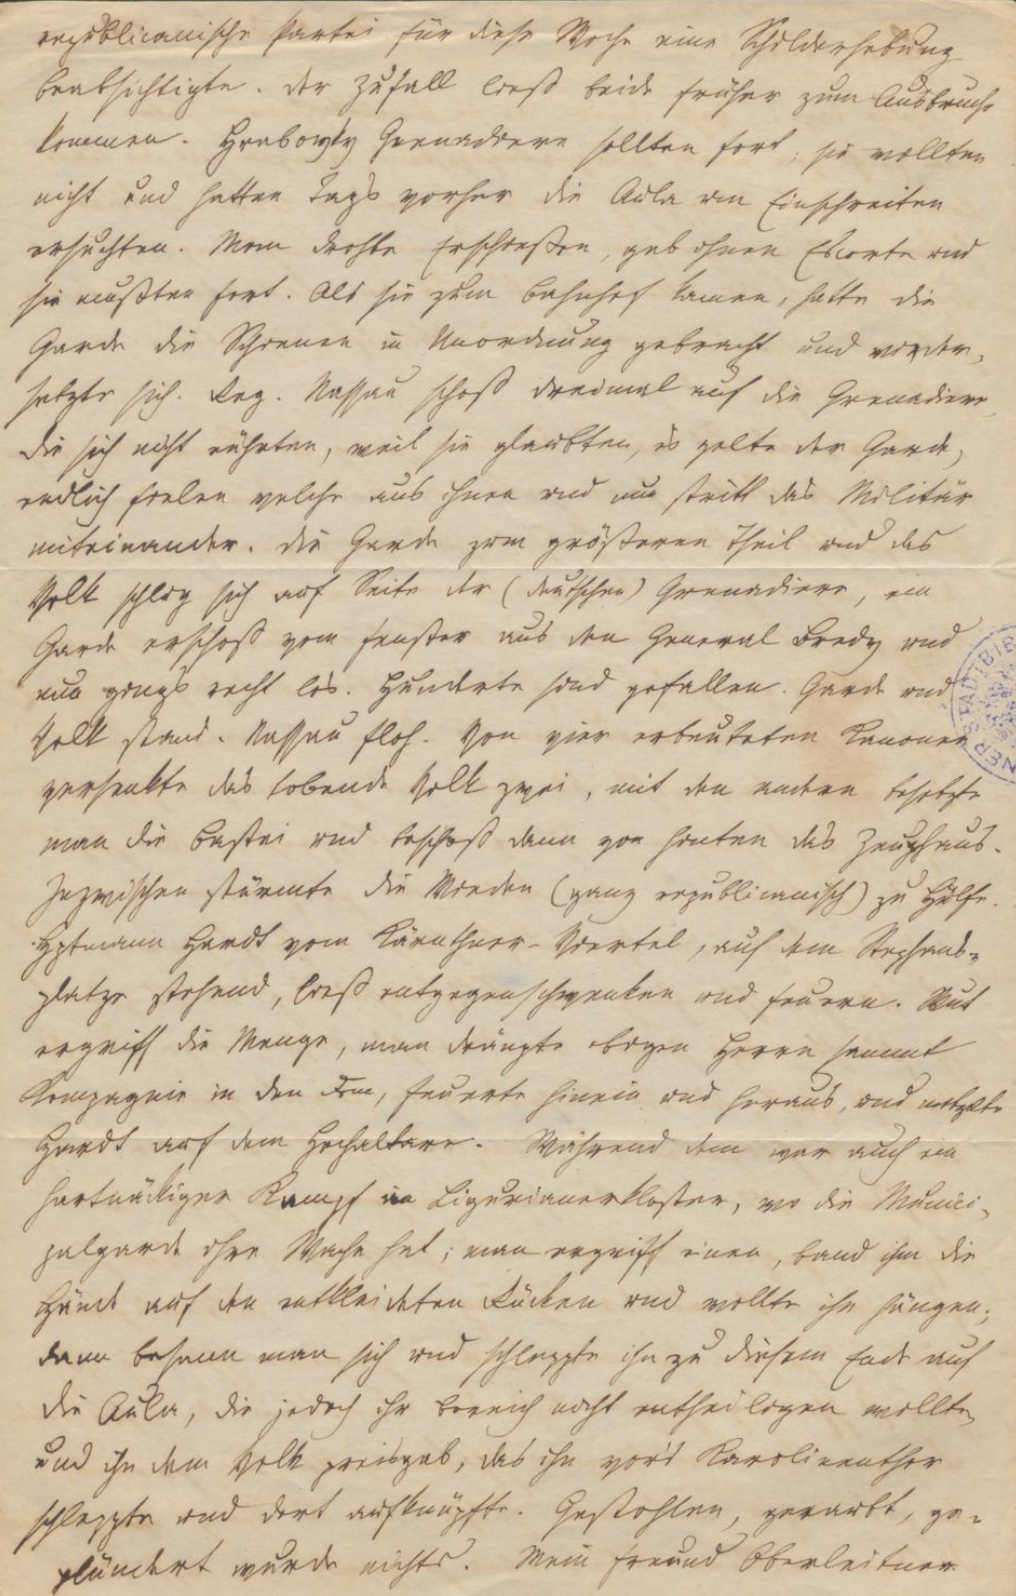 republicanische Partei für diese Woche eine Schilderhebung
beabsichtigte. Der Zufall ließ beide früher zum Ausbruche
kommen. Hrabowsky Grenadiere sollten fort, sie wollten
nicht und hatten Tags vorher die Aula um Einschreiten
ersuchten. Man drohte Erschießen, gab ihnen Escorte und
sie mußten fort. Als sie zum Bahnhof kamen, hatte die
Garde die Schienen in Unordnung gebracht und wieder-
setzte sich. Reg. Nassau schoß dreimal auf die Grenadiere,
die sich nicht rührten, weil sie glaubten, es gelte der Garde,
endlich fielen welche aus ihnen und nun stritt das Militär
miteinander. Die Garde zum größeren Theil und das
Volk schlug sich auf Seite der (deutschen) Grenadiere, ein
Garde erschoß vom Fenster aus den General Bredy und
nun gieng's recht los. Hunderte sind gefallen. Garde und
Volk stand. Nassau floh. Von vier erbeuteten Kanonen
versenkte das tobende Volk zwei, mit den andern besetzte
man die Bastei und beschoß dann von hinten das Zeughaus.
Inzwischen stürmte die Wieden (ganz republicanisch) zu Hülfe.
Hptmann Hardt vom Kärnthner-Viertel, auf dem Stephans-
platze stehend, ließ entgegenschwenken und feuern. Wut
ergriff die Menge, man drängte obigen Herrn sammt
Kompagnie in den Dom, feuerte hinein und heraus, und metzelte
Hardt auf dem Hochaltare. Während dem war auch ein
hartnäckiger Kampf im Ligurianerkloster, wo die Munici-
palgarde ihre Wache hat; man ergriff einen, band ihm die
Hände auf den entkleideten Rücken und wollte ihn hängen;
dann besann man sich und schleppte ihn zu diesem Ende auf
die Aula, die jedoch ihr Bereich nicht entheiligen wollte
und ihn dem Volk preisgab, das ihn vor's Karolinenthor
schleppte und dort aufknüpfte. Gestohlen, geraubt, ge-
plündert wurde nichts. Mein Freund Oberleitner